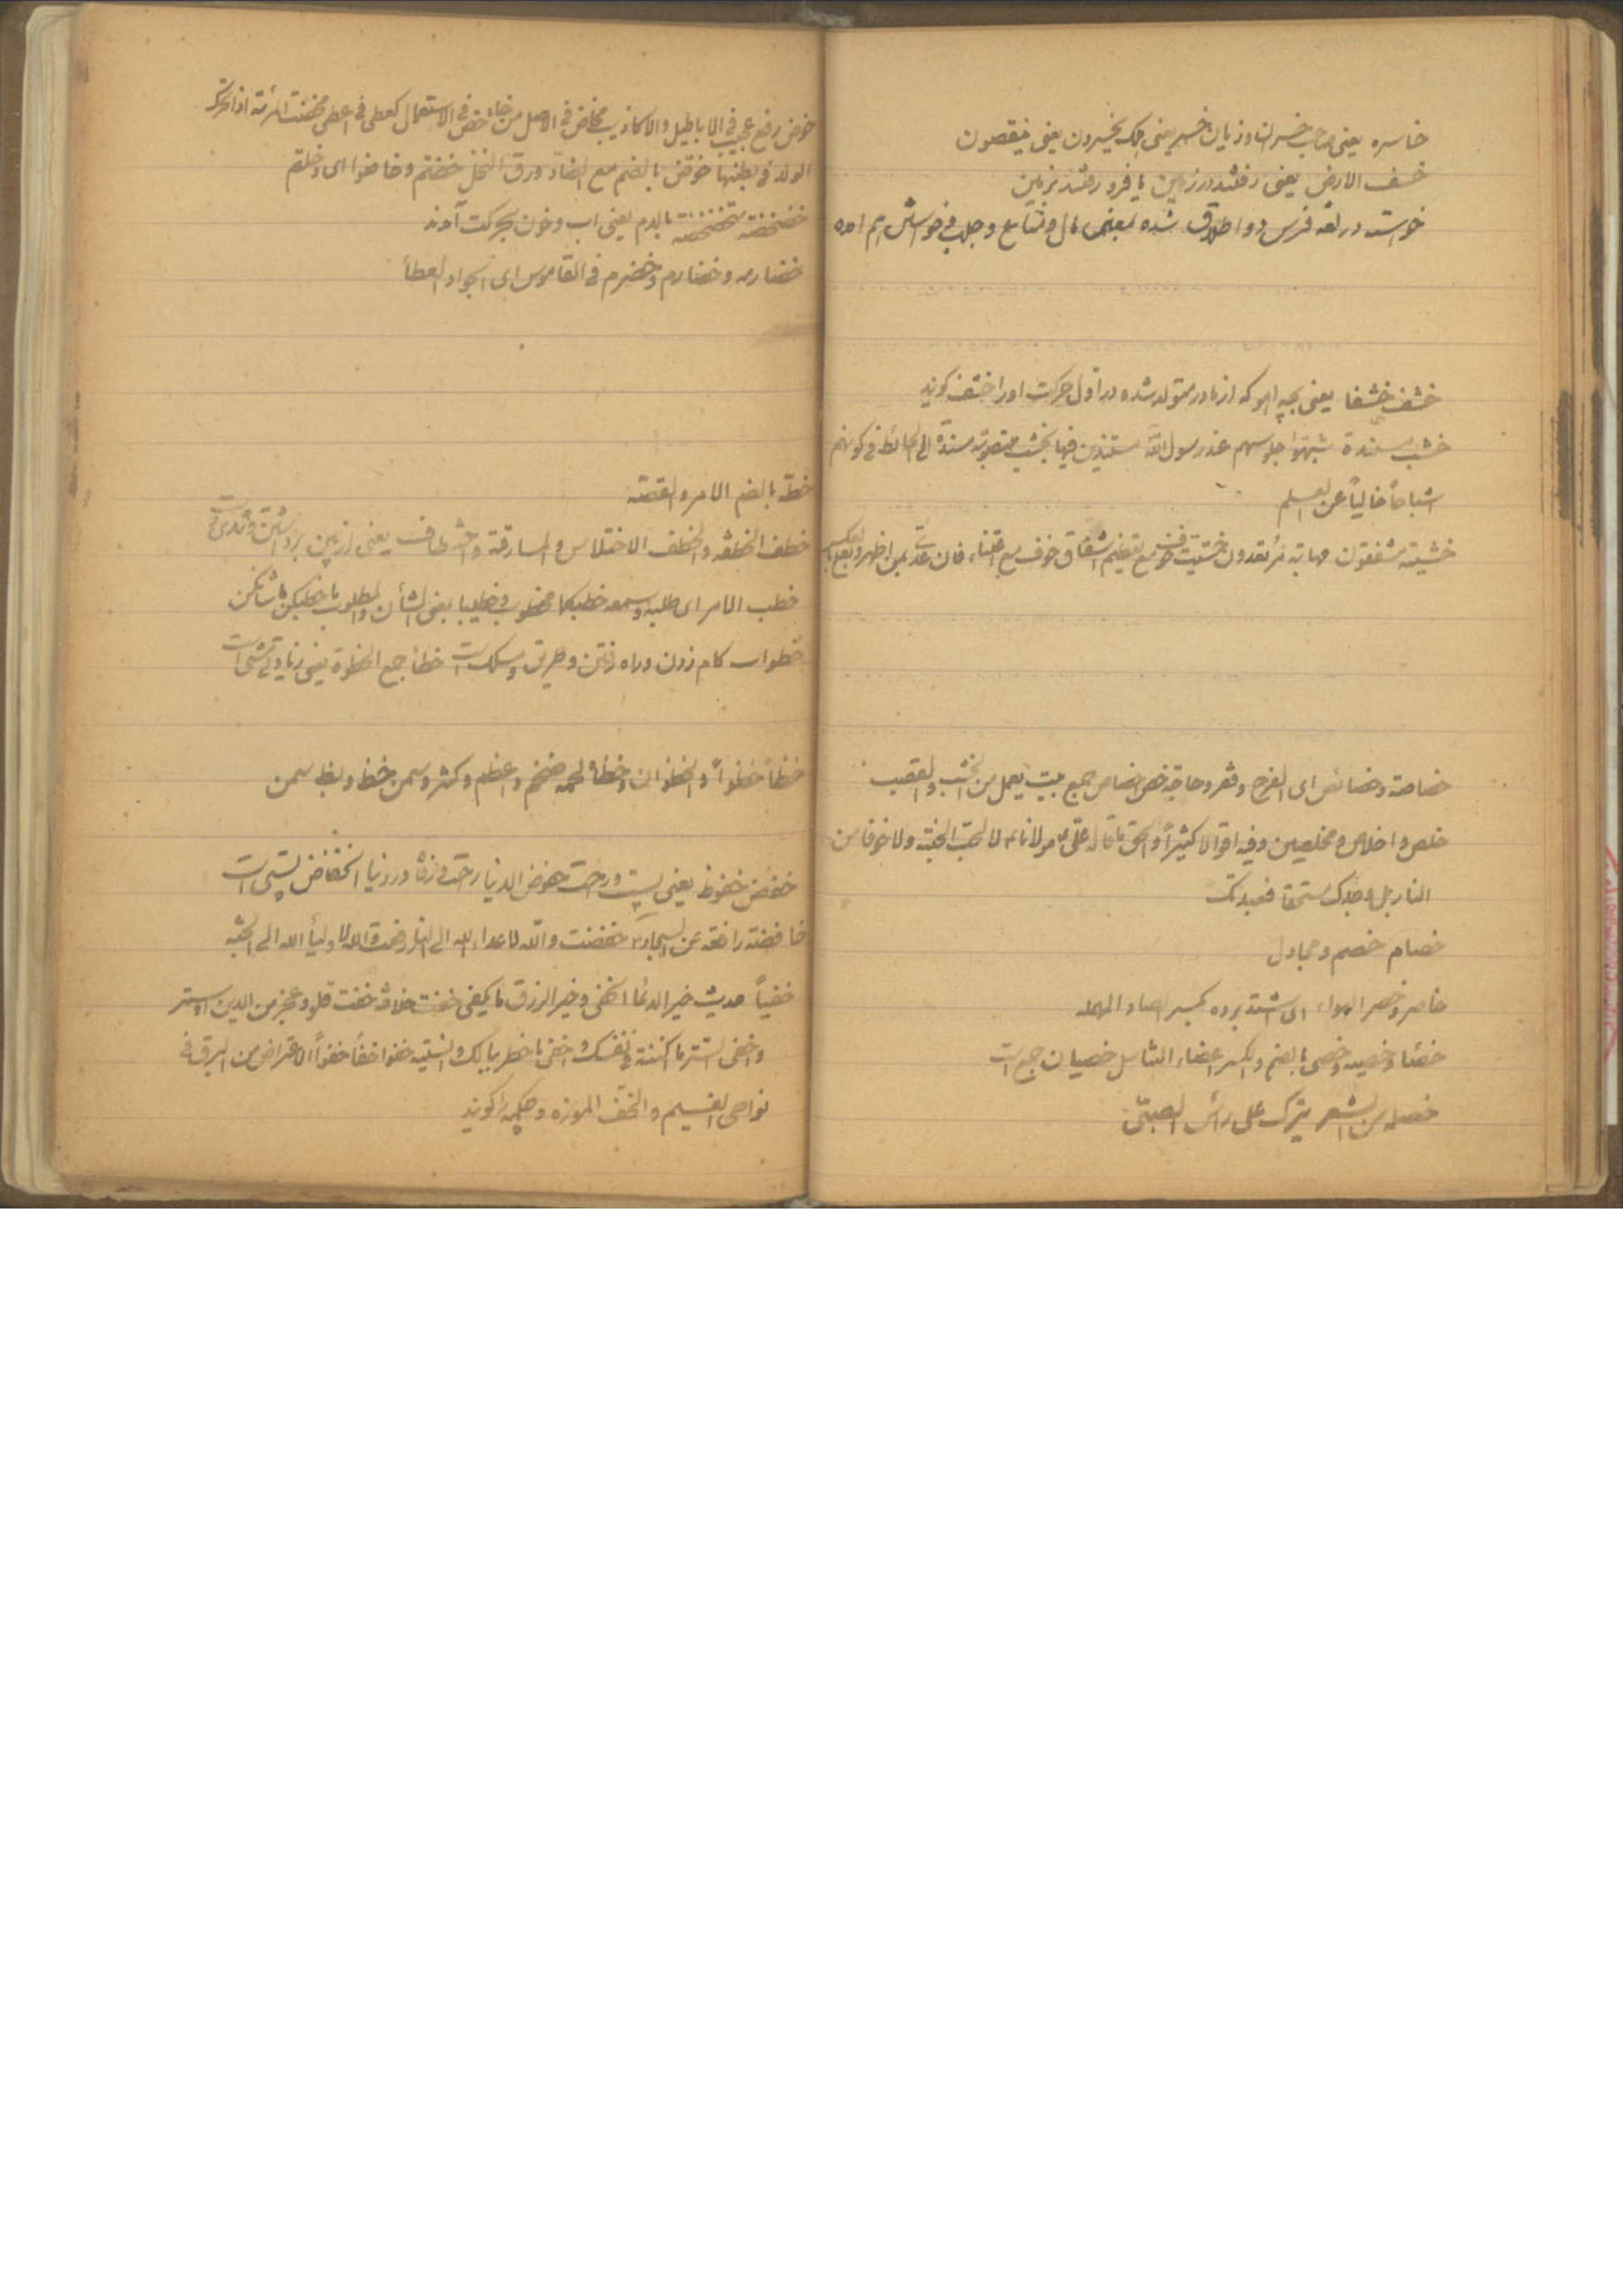 خاسره یعنی صاحب خسران و زیان خسر یعنی هلک یخسرون یعنی ینقصون
خسف الارض یعنی رفتند در زمین یا فرو رفتند بزمین
خواسته در لغه فرس دو اطلاق شده بمعنی مال و متاع و جلب فی خواستن هم امده
خشف خشفا یعنی بچه اهو که از مادر متولد شده در اول حرکت اورا خشف کویند
خشب مسنده شبهوا جلوسهم عند رسول الله مستندین فیها بخشب منصوبة مسندة الی الحائط فی کونهم
اشباحاً خالیاً عن العلم
خشیته مشفقون مهابة مرتعدون خشیت خوف مع تعظیم اشفاق خوف مع اعتناء فان عدی بمن اظهر و بعلی بالعکس
خصاصة و خصائص ای الفرج و فقر و حاجة خص خصاص جمع بیت یعمل من الخشب و القصب
خلص و اخلاص و مخلصین و فیه اقوالا کثیراً و الحق ما قاله علی مولانا ع لا لحب الجنة و لا خوفا من
النار بل وجدک مستحقا فعبدتک
خصام خصم و مجادل
خاصر و خصر الهواء ای اشتد برده بکسر الصاد المهمله
خصئا و خصیه و خصی بالضم و بکسر اعضاء التناسل خصیان جمع است
خصله من الشعر یترک علی رأس الصبیّ
خوض رفع عجیب فی الاباطیل و الاکاذیب مخاض فی الاصل من خاض خض فی الاستعمال کعطی فی اعطی مخضت المرئة اذا تحرک
الولد فی بطنها خوض بالضم مع الضاد ورق النخل خضتم و خاضوا ای دخلتم
خضخضه تخضخضه بالدم یعنی اب و خون بحرکت آمدند
خضارمه و خضارم و خضرم فی القاموس ای الجواد المعطاء
خطة بالضم الامر و القصه
خطف الخطفه و الخطف الاختلاس و المسارقة و خطاف یعنی از زمین برداشتن
خطب الامر ای طلبه و سمعه خطبکما مخطوب و خطیبا بمعنی الشأن و المطلوب ما خطبکن ما شأنکن
خطوات کام زدن و راه رفتن و طریق و مسلک است خطأ جمع الخطوة
خظأ خظواً و الخظوان و خظا لحمه ضخم و اعظم و کثر و سمن خظ و بظ سمن
خفض خفوظ یعنی پست و راحت خفوض الدنیا راحت و رفاه در دنیا انخفاض پستی است
خافضة رافعه عن السجاد ع خفضت والله لاعداء الله الی النار رفعت والله لاولیأ الله الی الجنه
خفیاً حدیث خیر الدعا الخفی و خیر الرزق ما یکفی خفت خلافه خفت قلو و عجز من الدین او ستر
و اخفی الستر ما کننته فی نفسک و اخفی ما خطر ببالک و نسیته خفوا خفأ خفواً الاعتراض من البرق فی
نواحی الغیم و الخف الموزه و چکمه را کویند